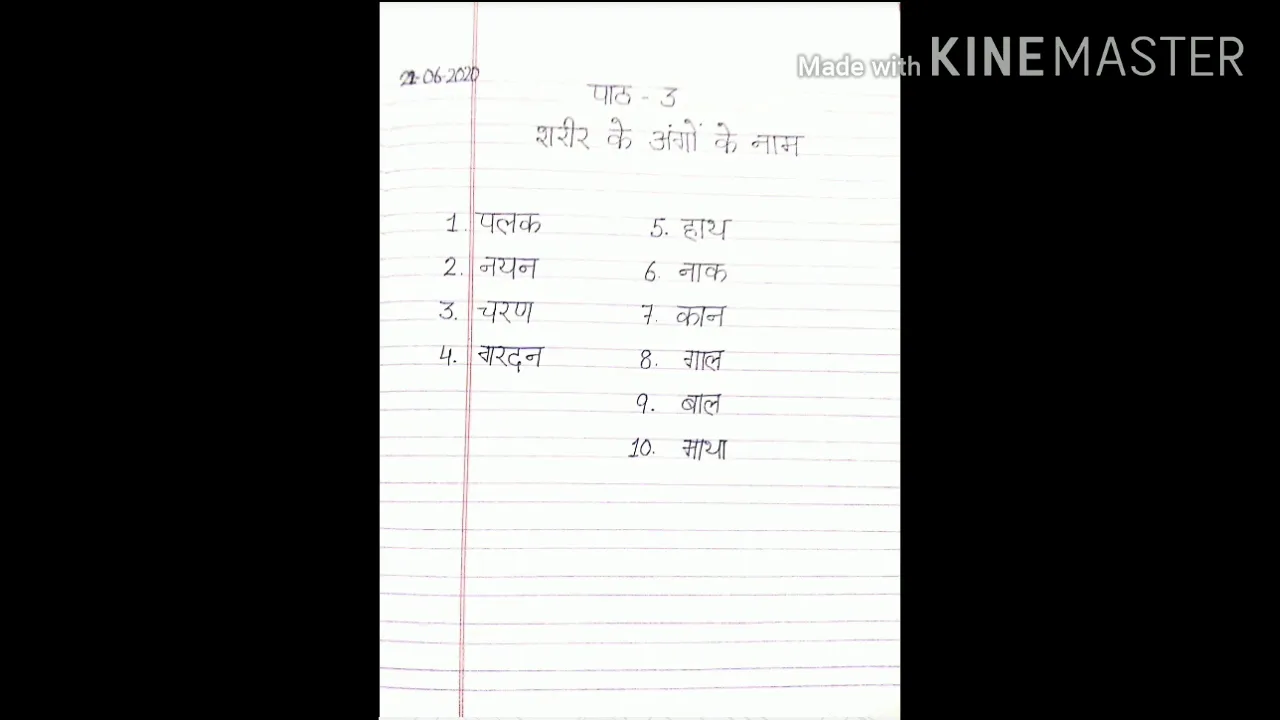 Made with KINEMASTER
22-06-2020
पाठ - 3
शरीर के अंगों के नाम
1. पलक
2. नयन
3. चरण
4. गरदन
5. हाथ
6. नाक
7. कान
8. गाल
9. बाल
10. माथा